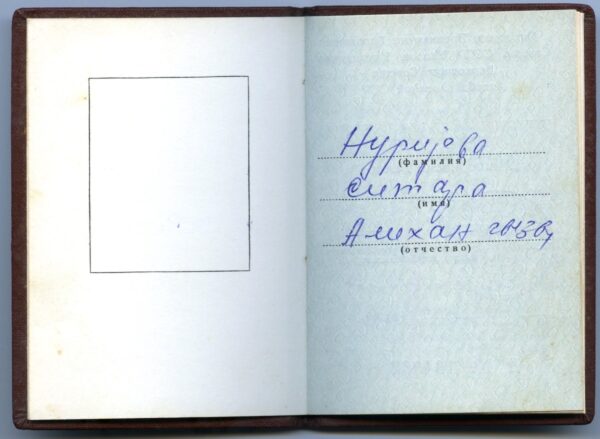 Нуријова
(фамилия)
Ситара
(имя)
Амехан гызы
(отчество)